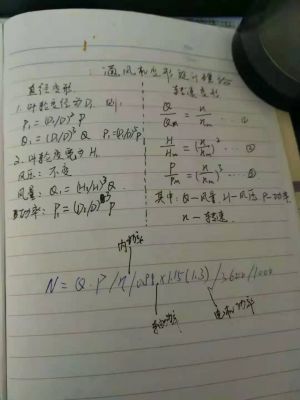 通风机变形设计理论
直径变形
1. 叶轮直径为D₁ 则:
P₁=(D₁/D)² P
Q₁=(D₁/D)³ Q P₁=(D₁/D)⁵P
2. 叶轮宽度为H₁
风压: 不变
风量: Q₁=(H₁/H)³Q
功率: P₁=(D₁/D)³P
转速变形
Q/Qm = n/nm ... ①
H/Hm = (n/nm)² ... ②
P/Pm = (n/nm)³ ... ③
其中: Q—风量 H—风压 P—功率
n—转速
内功率
N=Q·P/η/0.98×1.15(1.3)/3600/1000
电机功率